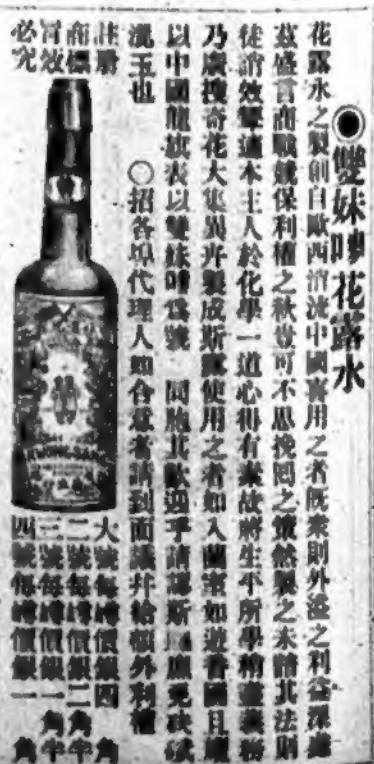 ◉雙妹嘜花露水
花露水之製創自歐西消流中國喜用之者既衆則外溢之利益深
茲盛言商戰競保利權之秋豈可不思挽囘之策然製之未諳其法則
徒誚效顰本主人於化學一道心得有素故將生平所學精
乃廣搜奇花大集異卉製成斯露使用之者如入蘭室如遊香國且
以中國龍旗表以雙妹嘜爲號 同胞其歡迎乎請認斯庶免
混玉也 ○招各埠代理人如合意者請到面議幷給額外利權
註册
商標
冒效
必究
KWONG SANG
大號每樽價銀四角
二號每樽價銀二角半
三號每樽價銀一角半
四號每樽價銀一角